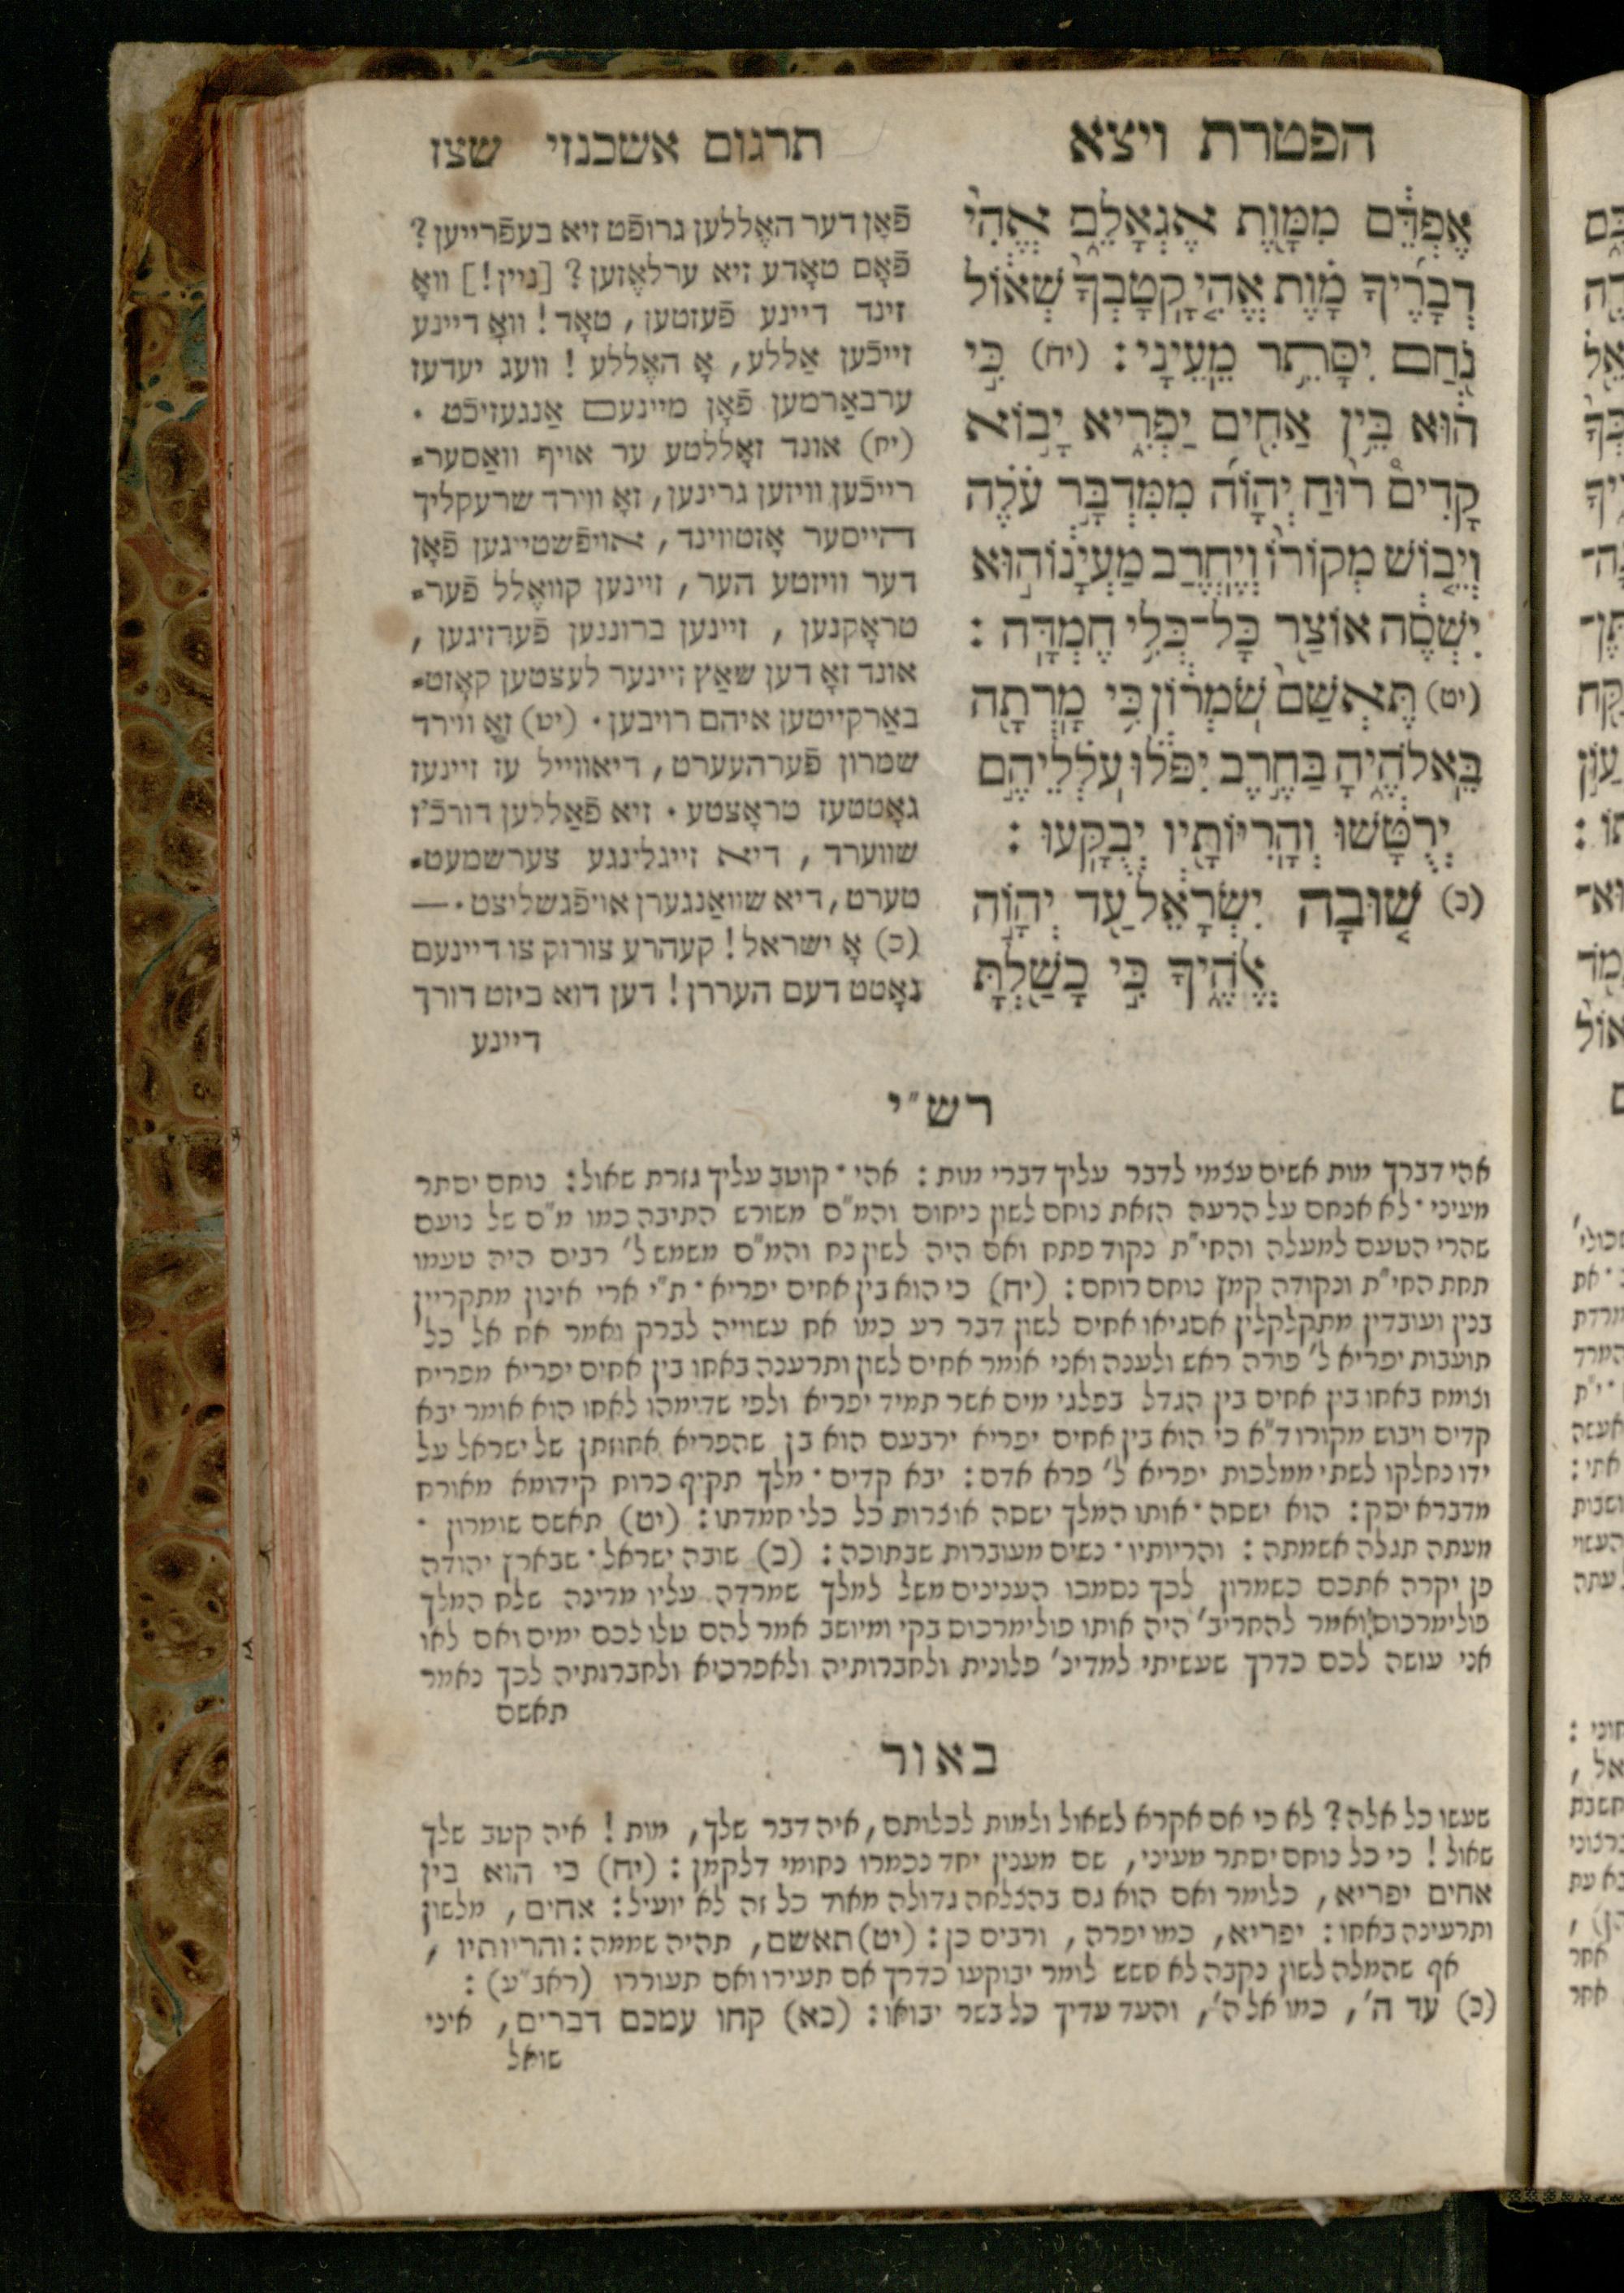 הפטרת ויצא
תרגום אשכנזי שצז
אֶפְדֵּם מִמָּוֶת אֶגְאָלֵם אֱהִי
דְבָרֶיךָ מָוֶת אֱהִי קָטָבְךָ שְׁאוֹל
נֹחַם יִסָּתֵר מֵעֵינָי : (יח) כִּי
הוּא בֵּין אַחִים יַפְרִיא יָבוֹא
קָדִים רוּחַ יְהוָֹה מִמִּדְבָּר עֹלֶה
וְיֵבוֹשׁ מְקוֹרוֹ וְיֶחֱרַב מַעְיָנוֹ הוּא
יִשְׁסֶה אוֹצַר כָּל־כְּלִי חֶמְדָּה :
(יט) תֶּאְשַׁם שֹׁמְרוֹן כִּי מָרְתָה
בֵּאלֹהֶיהָ בַּחֶרֶב יִפֹּלוּ עֹלְלֵיהֶם
יְרֻטָּשׁוּ וְהָרִיּוֹתָיו יְבֻקָּעוּ :
(כ) שׁוּבָה יִשְׂרָאֵל עַד יְהוָֹה
אֱלֹהֶיךָ כִּי כָשַׁלְתָּ
פֿאָן דער האֶללען גרופֿט זיא בעפֿרייען ?
פֿאָם טאָדע זיא ערלאֶזען ? [ניין !] וואָ
זינד דיינע פּֿעזטען , טאָד ! וואָ דיינע
זייכֿען אַללע, אָ האֶללע ! וועג יעדעז
ערבאַרמען פֿאָן מיינעם אַנגעזיכֿט ·
(יח) אונד זאָללטע ער אויף וואַסער=
רייכֿען וויזען גרינען, זאָ ווירד שרעקליך
הייסער אָזטווינד, אויפֿשטייגען פֿאָן
דער וויזטע הער, זיינען קוואֶלל פֿער=
טראָקנען , זיינען ברוננען פֿערזיגען ,
אונד זאָ דען שאַץ זיינער לעצטען קאָזט=
באַרקייטען איהם רויבען · (יט) זאָ ווירד
שמרון פֿערהעערט, דיאווייל עז זיינעז
גאָטטעז טראָצטע · זיא פֿאַללען דורכֿ'ז
שווערד , דיא זייגלינגע צערשמעט=
טערט, דיא שוואַנגערן אויפֿגשליצט · —
(כ) אָ ישראל ! קעהרע צורוק צו דיינעם
גאָטט דעם העררן ! דען דוא ביזט דורך
דיינע
רש"י
אהי דברך מות אשים עצמי לדבר עליך דברי מות : אהי · קוטב עליך גזרת שאול : נוחם יסתר
מעיני · לא אנחם על הרעה הזאת נוחם לשון ניחום והמ"ם משורש התיבה כמו מ"ם של נועם
שהרי הטעם למעלה והחי"ת נקוד פתח ואם היה לשון נח והמ"ם משמש ל' רבים היה טעמו
תחת החי"ת ונקודה קמץ נוחם רוחם : (יח) כי הוא בין אחים יפריא · ת"י ארי אינון מתקריין
בנין ועובדין מתקלקלין אסגיאו אחים לשון דבר רע כמו אח עשויה לברק ואמר אח אל כל
תועבות יפריא ל' פורה ראש ולענה ואני אומר אחים לשון ותרענה באחו בין אחים יפריא מפריח
וצומח באחו בין אחים בין הגדל בפלגי מים אשר תמיד יפריא ולפי שדימהו לאחו הוא אומר יבא
קדים ויבוש מקורו ד"א כי הוא בין אחים יפריא ירבעם הוא בן שהפריא אחוזתן של ישראל על
ידו נחלקו לשתי ממלכות יפריא ל' פרא אדם : יבא קדים · מלך תקיף כרוח קידומא מאורח
מדברא יסק : הוא ישסה · אותו המלך ישסה אוצרות כל כלי חמדתו : (יט) תאשם שומרון ·
מעתה תגלה אשמתה : והריותיו · נשים מעוברות שבתוכה : (כ) שובה ישראל · שבארץ יהודה
פן יקרה אתכם כשמרון לכך נסמכו הענינים משל למלך שמרדה עליו מדינה שלח המלך
פולימרכוס ואמר להחריב' היה אותו פולימרכוס בקי ומיושב אמר להם טלו לכם ימים ואם לאו
אני עושה לכם כדרך שעשיתי למדינ' פלונית ולחברותיה ולאפרכיא ולחברותיה לכך נאמר
תאשם
באור
שעשו כל אלה ? לא כי אם אקרא לשאול ולמות לכלותם, איה דבר שלך, מות ! איה קטב שלך
שאול ! כי כל נוחם יסתר מעיני, שם מענין יחד נכמרו נחומי דלקמן : (יח) כי הוא בין
אחים יפריא, כלומר ואם הוא גם בהצלחה גדולה מאוד כל זה לא יועיל : אחים, מלשון
ותרעינה באחו : יפריא, כמו יפרה, ורבים כן : (יט) תאשם, תהיה שממה : והריותיו ,
אף שהמלה לשון נקבה לא חשש לומר יבוקעו כדרך אם תעירו ואם תעוררו (ראב"ע) :
(כ) עד ה', כמו אל ה', והעד עדיך כל בשר יבואו : (כא) קחו עמכם דברים, איני
שואל